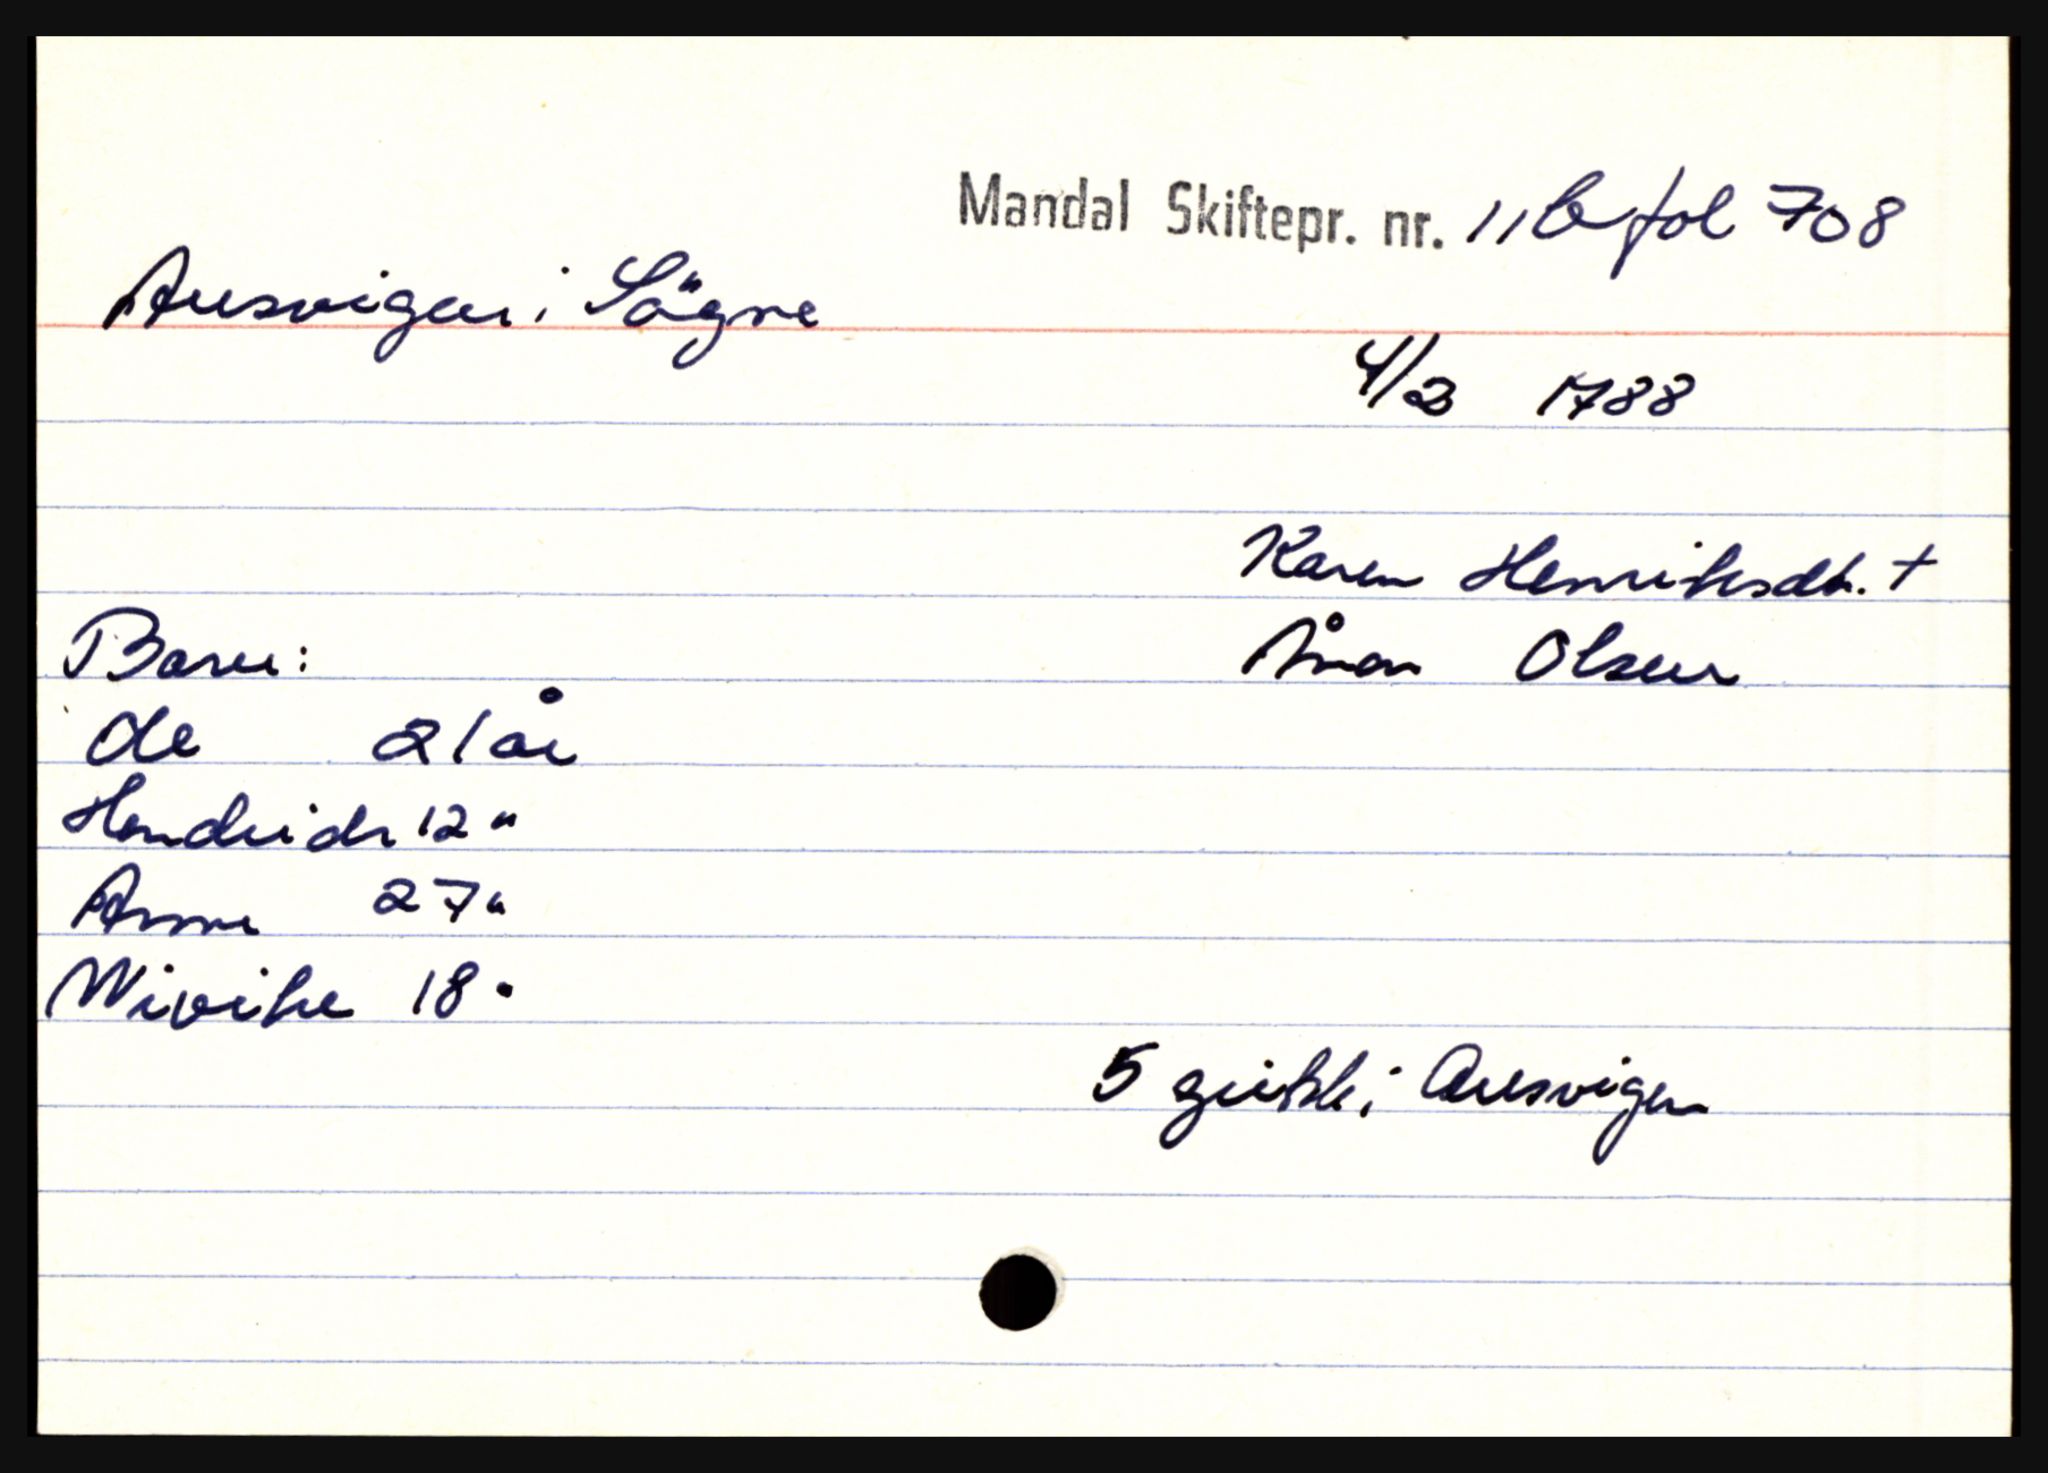 Mandal Skiftepr. nr. 11b fol 708
Aresvigen i Sögne
4/2 1788
Karen Henriksdtr. +
Barn: Ånon Olsen
Ole 21 år
Hendrich 12 "
Anne 27 "
Wivike 18 "
5 gjisle i Aresvigen